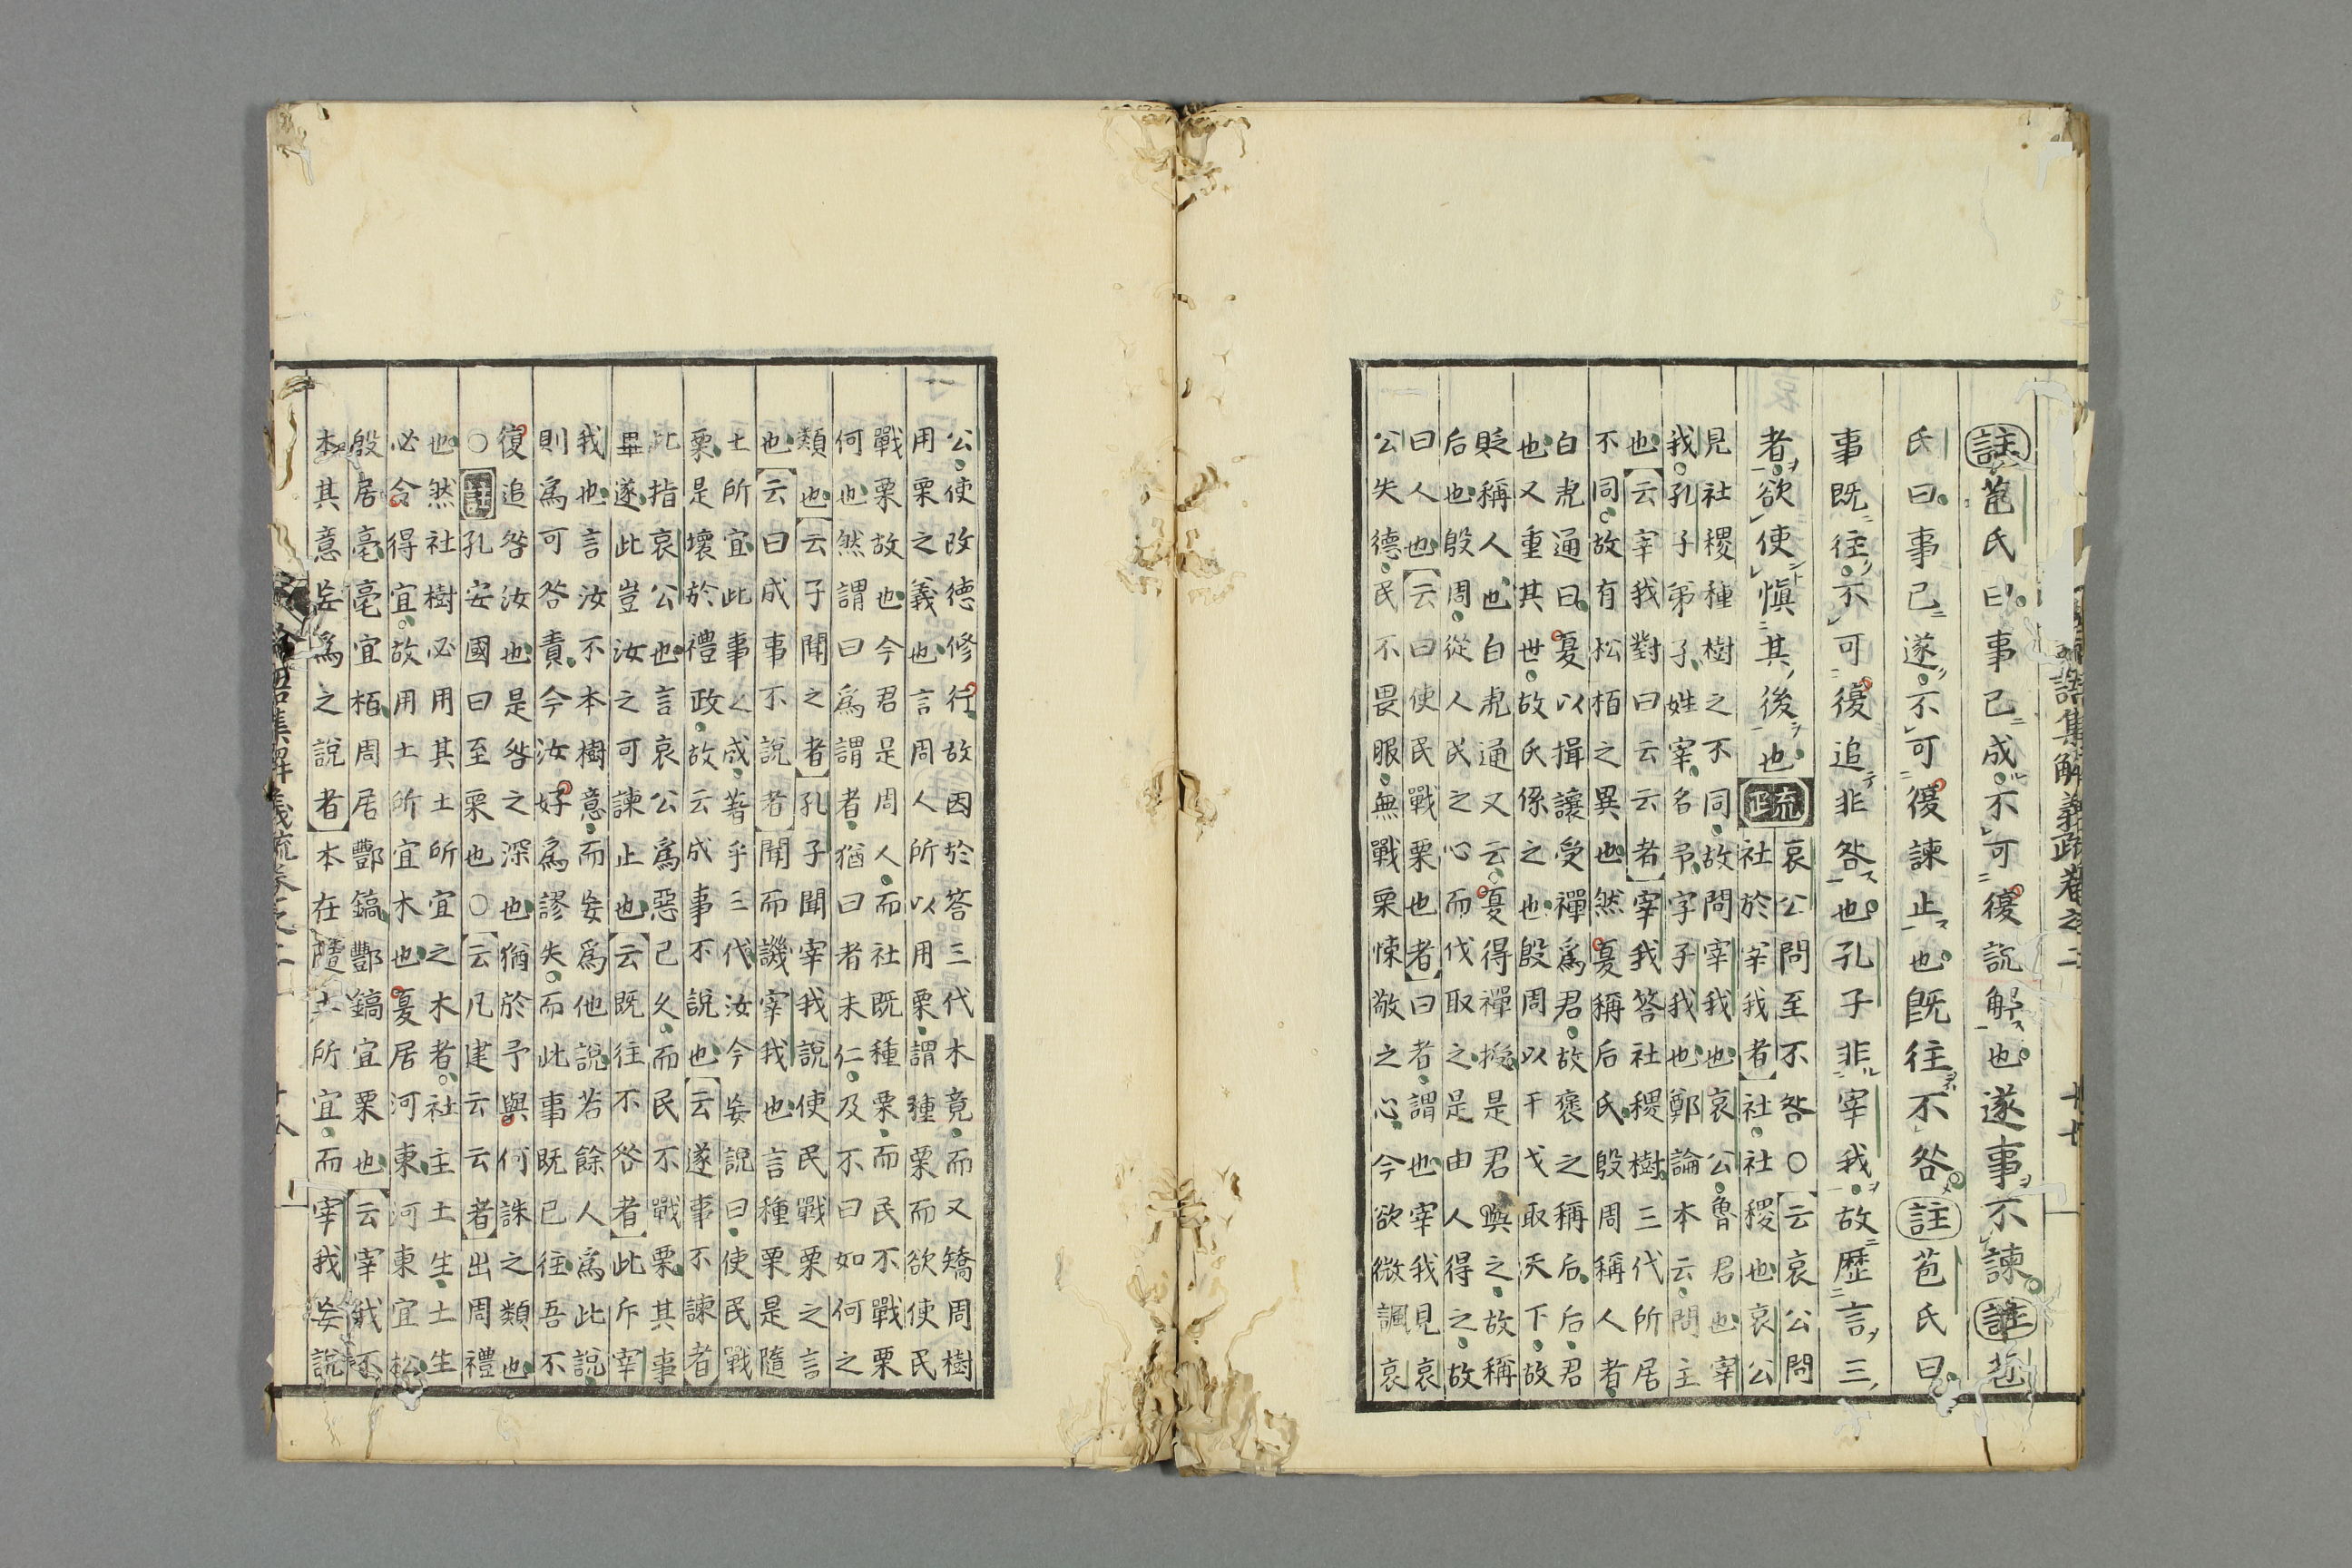 註苞氏曰事已成不可復說解也遂事不諫註苞
氏曰事已遂不可復諫止也既往不咎註苞氏曰
事既往不可復追非咎也孔子非宰我故歷言三
者欲使慎其後也疏正
哀公問至不咎○云哀公問
社於宰我者社社稷也哀公
見社稷種樹之不同故問宰我也哀公魯君也宰
我孔子弟子姓宰名予字子我也鄭論本云問主
也云宰我對曰云云者宰我答社稷樹三代所居
不同故有松栢之異也然夏稱后氏殷周稱人者
白虎通曰夏以揖讓受禪爲君故褒之稱后后君
也又重其世故氏係之也殷周以干戈取天下故
貶稱人也白虎通又云夏得禪授是君與之故稱
后也殷周從人民之心而伐取之是由人得之故
曰人也云曰使民戰栗也者曰者謂也宰我見哀
公失德民不畏服無戰栗悚敬之心今欲微諷哀
論語集解義疏卷之二 十七
公使改德修行故因於答三代木竟而又矯周樹
用栗之義也言周人所以用栗謂種栗而欲使民
戰栗故也今君是周人而社既種栗而民不戰栗
何也然謂曰爲謂者猶曰者未仁及不曰如何之
類也云子聞之者孔子聞宰我說使民戰栗之言
也云曰成事不說者聞而譏宰我也言種栗是隨
土所宜此事之成著乎三代汝今妄說曰使民戰
栗是壞於禮政故云成事不說也云遂事不諫者
此指哀公也言哀公爲惡已久而民不戰栗其事
畢遂此豈汝之可諫止也云既往不咎者此斥宰
我也言汝不本樹意而妄爲他說若餘人爲此說
則爲可咎責今汝好爲謬失而此事既已往吾不
復追咎汝也是咎之深也猶於予與何誅之類也
○註孔安國曰至栗也○云凡建云云者出周禮
也然社樹必用其土所宜之木者社主土生土生
必令得宜故用土所宜木也夏居河東河東宜松
殷居亳亳宜栢周居酆鎬酆鎬宜栗也云宰我不
本其意妄爲之說者本在隨土所宜而宰我妄說
論語集解義疏卷之二 十八